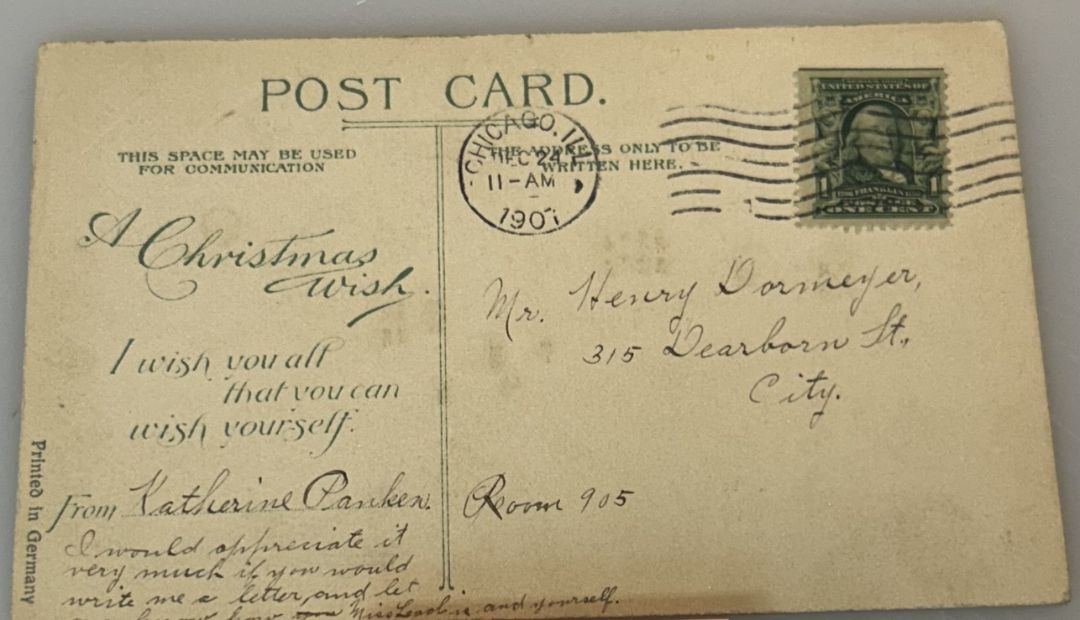 POST CARD.
THIS SPACE MAY BE USED
FOR COMMUNICATION
THE ADDRESS ONLY TO BE
WRITTEN HERE.
CHICAGO, ILL
DEC 24
11-AM
1907
UNITED STATES OF
AMERICA
1 FRANKLIN 1
ONE CENT
A Christmas
Wish.
I wish you all
that you can
wish yourself.
From Katherine Panken.
I would appreciate it
very much if you would
write me a letter and let
know how Miss Leash is and yourself.
Mr. Henry Dormeyer,
315 Dearborn St.,
City.
Room 905
Printed in Germany